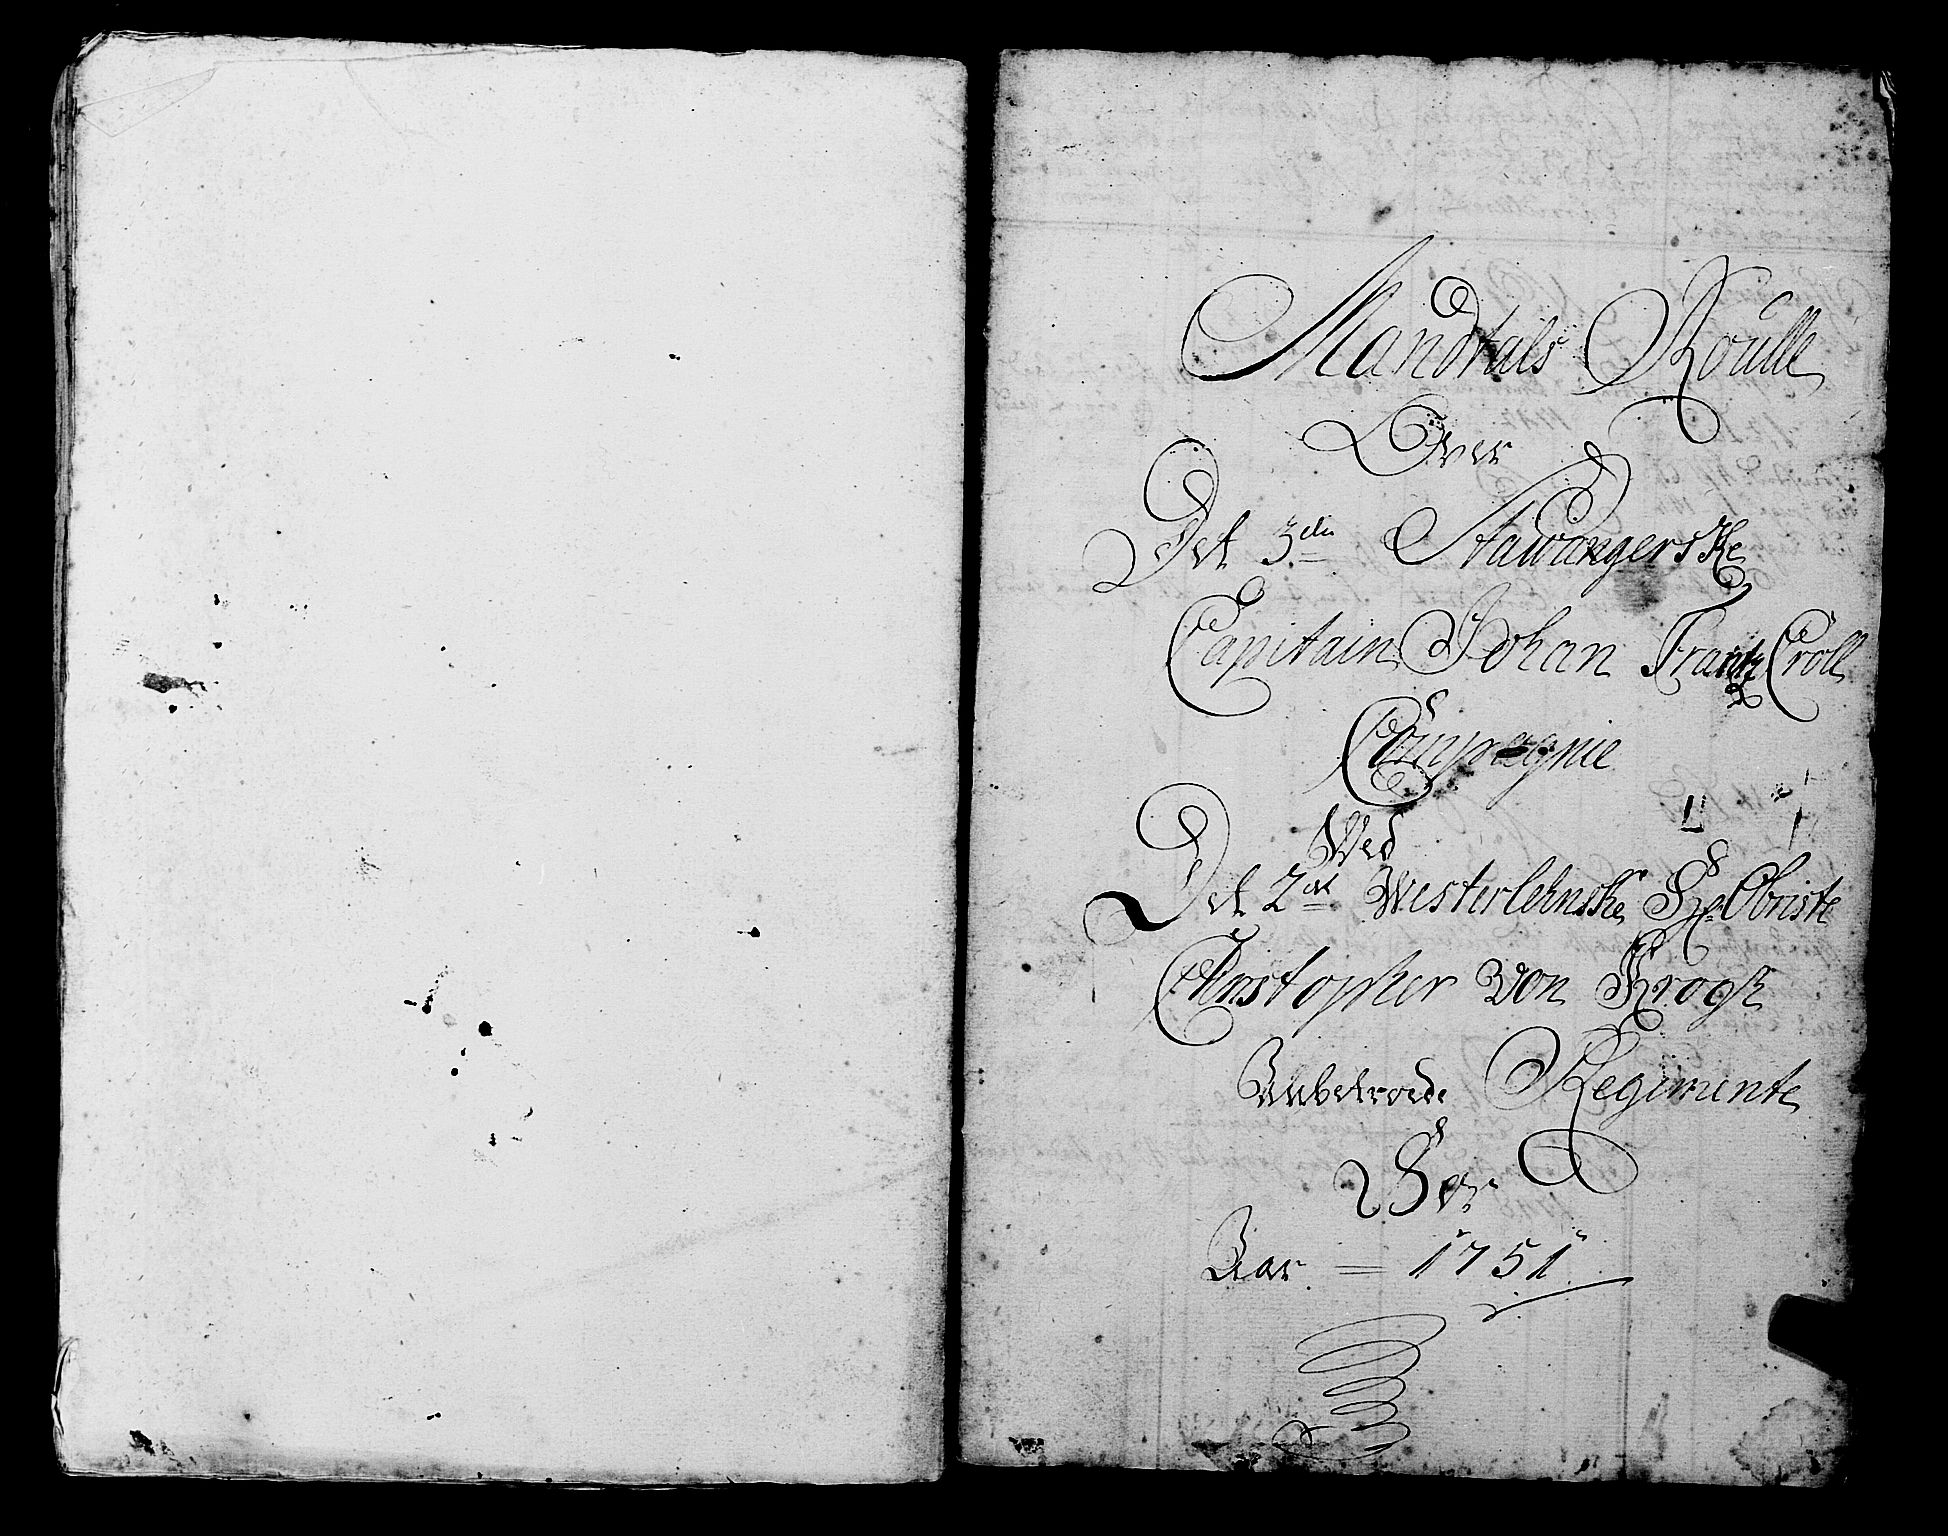 Mandtals Roulle
Over
Det 3die Stawangerske
Capitain Johan Frantz Croll
Compagnie
Ved
Det 2det Westerlehnske Hr Obriste
Christopher von Krogh
Anbetroede Regimente
For
Aar = 1751